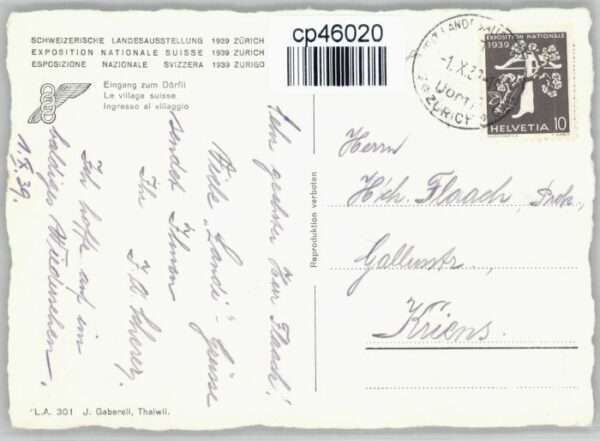 SCHWEIZERISCHE LANDESAUSSTELLUNG 1939 ZÜRICH
EXPOSITION NATIONALE SUISSE 1939 ZURICH
ESPOSIZIONE NAZIONALE SVIZZERA 1939 ZURIGO
Eingang zum Dörfli
Le village suisse
Ingresso al villaggio
cp46020
EXPOSITION NATIONALE
1939
HELVETIA 10
ZÜRICH
Sehr geehrter Herr Flaach!
Viele „Landi"-Grüsse
sendet Ihnen
Ihr
Ich hoffe auf ein
baldiges Wiedersehen.
1.X.39.
Reproduktion verboten
Herrn
Hch. Flaach,
Gallusstr.,
Kriens.
L.A. 301 J. Gaberell, Thalwil.